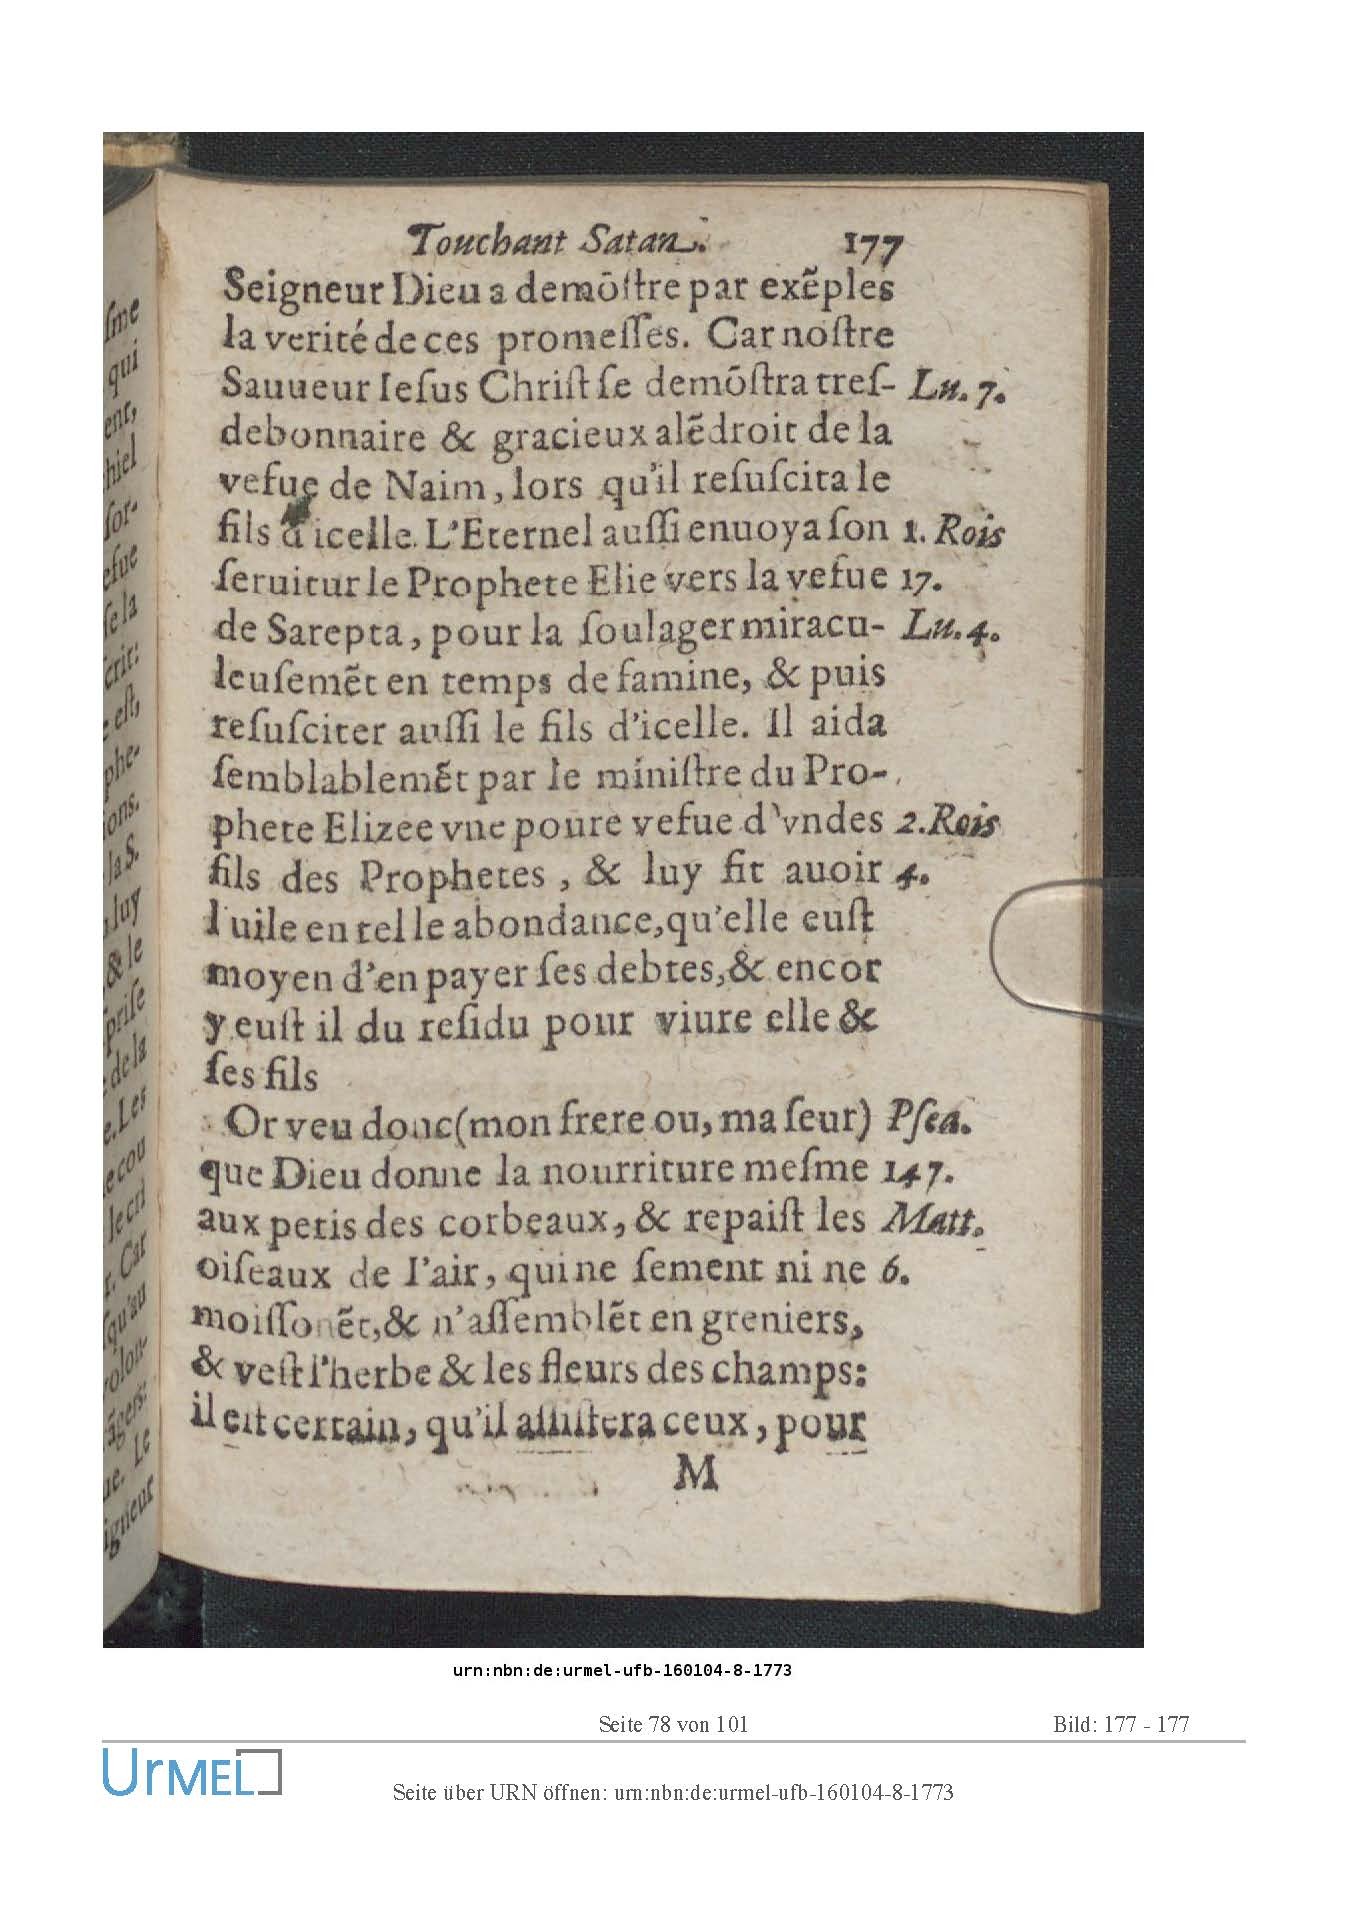 Touchant Satan. 177
Seigneur Dieu a demōſtre par exẽples
la verité de ces promeſſes. Car noſtre
Sauueur Ieſus Chriſt ſe demōſtra treſ- Lu. 7.
debonnaire & gracieux alẽdroit de la
vefue de Naim, lors qu'il reſuſcita le
fils d'icelle. L'Eternel auſſi enuoya ſon 1. Rois
ſeruiteur le Prophete Elie vers la vefue 17.
de Sarepta, pour la ſoulager miracu- Lu. 4.
leuſemẽt en temps de famine, & puis
reſuſciter auſſi le fils d'icelle. Il aida
ſemblablemẽt par le miniſtre du Pro-
phete Elizee vne poure vefue d'vndes 2. Rois
fils des Prophetes, & luy fit auoir 4.
l'uile en telle abondance, qu'elle euſt
moyen d'en payer ſes debtes, & encor
y euſt il du reſidu pour viure elle &
ſes fils
Or veu donc (mon frere ou, ma ſeur) Pſea.
que Dieu donne la nourriture meſme 147.
aux petis des corbeaux, & repaiſt les Matt.
oiſeaux de l'air, qui ne ſement ni ne 6.
moiſſonẽt, & n'aſſemblẽt en greniers,
& veſt l'herbe & les fleurs des champs:
il eſt certain, qu'il aſſiſtera ceux, pour
M
ſme
qui
ent,
hiel
ſor-
efue
ſe la
crit:
eſt,
phe-
ions.
la S.
luy
& le
priſe
de la
e. Les
e cou
le cri
r. Car
ſqu'au
rolon-
ãgers:
ue. Le
igneur
urn:nbn:de:urmel-ufb-160104-8-1773
Seite 78 von 101 Bild: 177 - 177
UrMEL
Seite über URN öffnen: urn:nbn:de:urmel-ufb-160104-8-1773